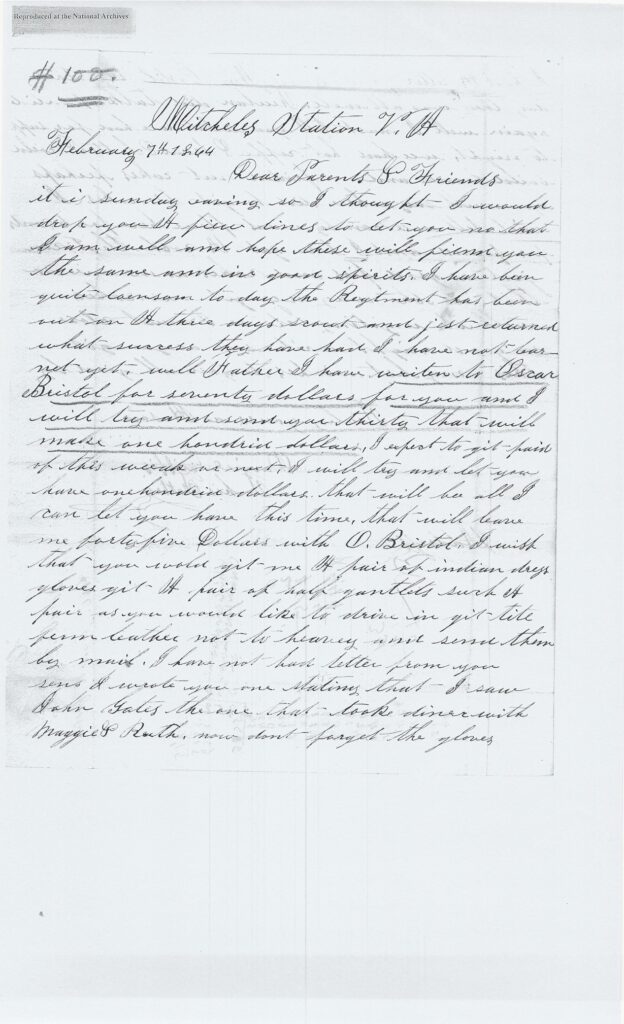 Reproduced at the National Archives
# 100.
Mitcheles Station V. A
February 7th 1864
Dear Parents & Friends
it is sunday eaving so I thought I would
drop you A fiew lines to let you no that
I am well and hope these will fiend you
the same and in good spirits. I have been
quite loensom to day the Regtment has been
out on A three days scout and jest returned
what success they have had I have not lear
net yet. well Father I have writen to Oscar
Bristol for seventy dollars for you and I
will try and send you thirty that will
make one hondrid dollars, I expect to git paid
of this weeak or next, I will try and let you
have one hondrid dollars. that will be all I
can let you have this time, that will leave
me forty five Dollars with O. Bristol. I wish
that you wold git me A pair of indian dress
gloves git A pair of half gantlets such A
pair as you would like to drive in git tite
ferm leather not to heavey and send them
by mail. I have not had letter from you
sens I wrote you one stating that I saw
John Gates the one that tooke diner with
Maggie & Ruth. now dont forget the gloves